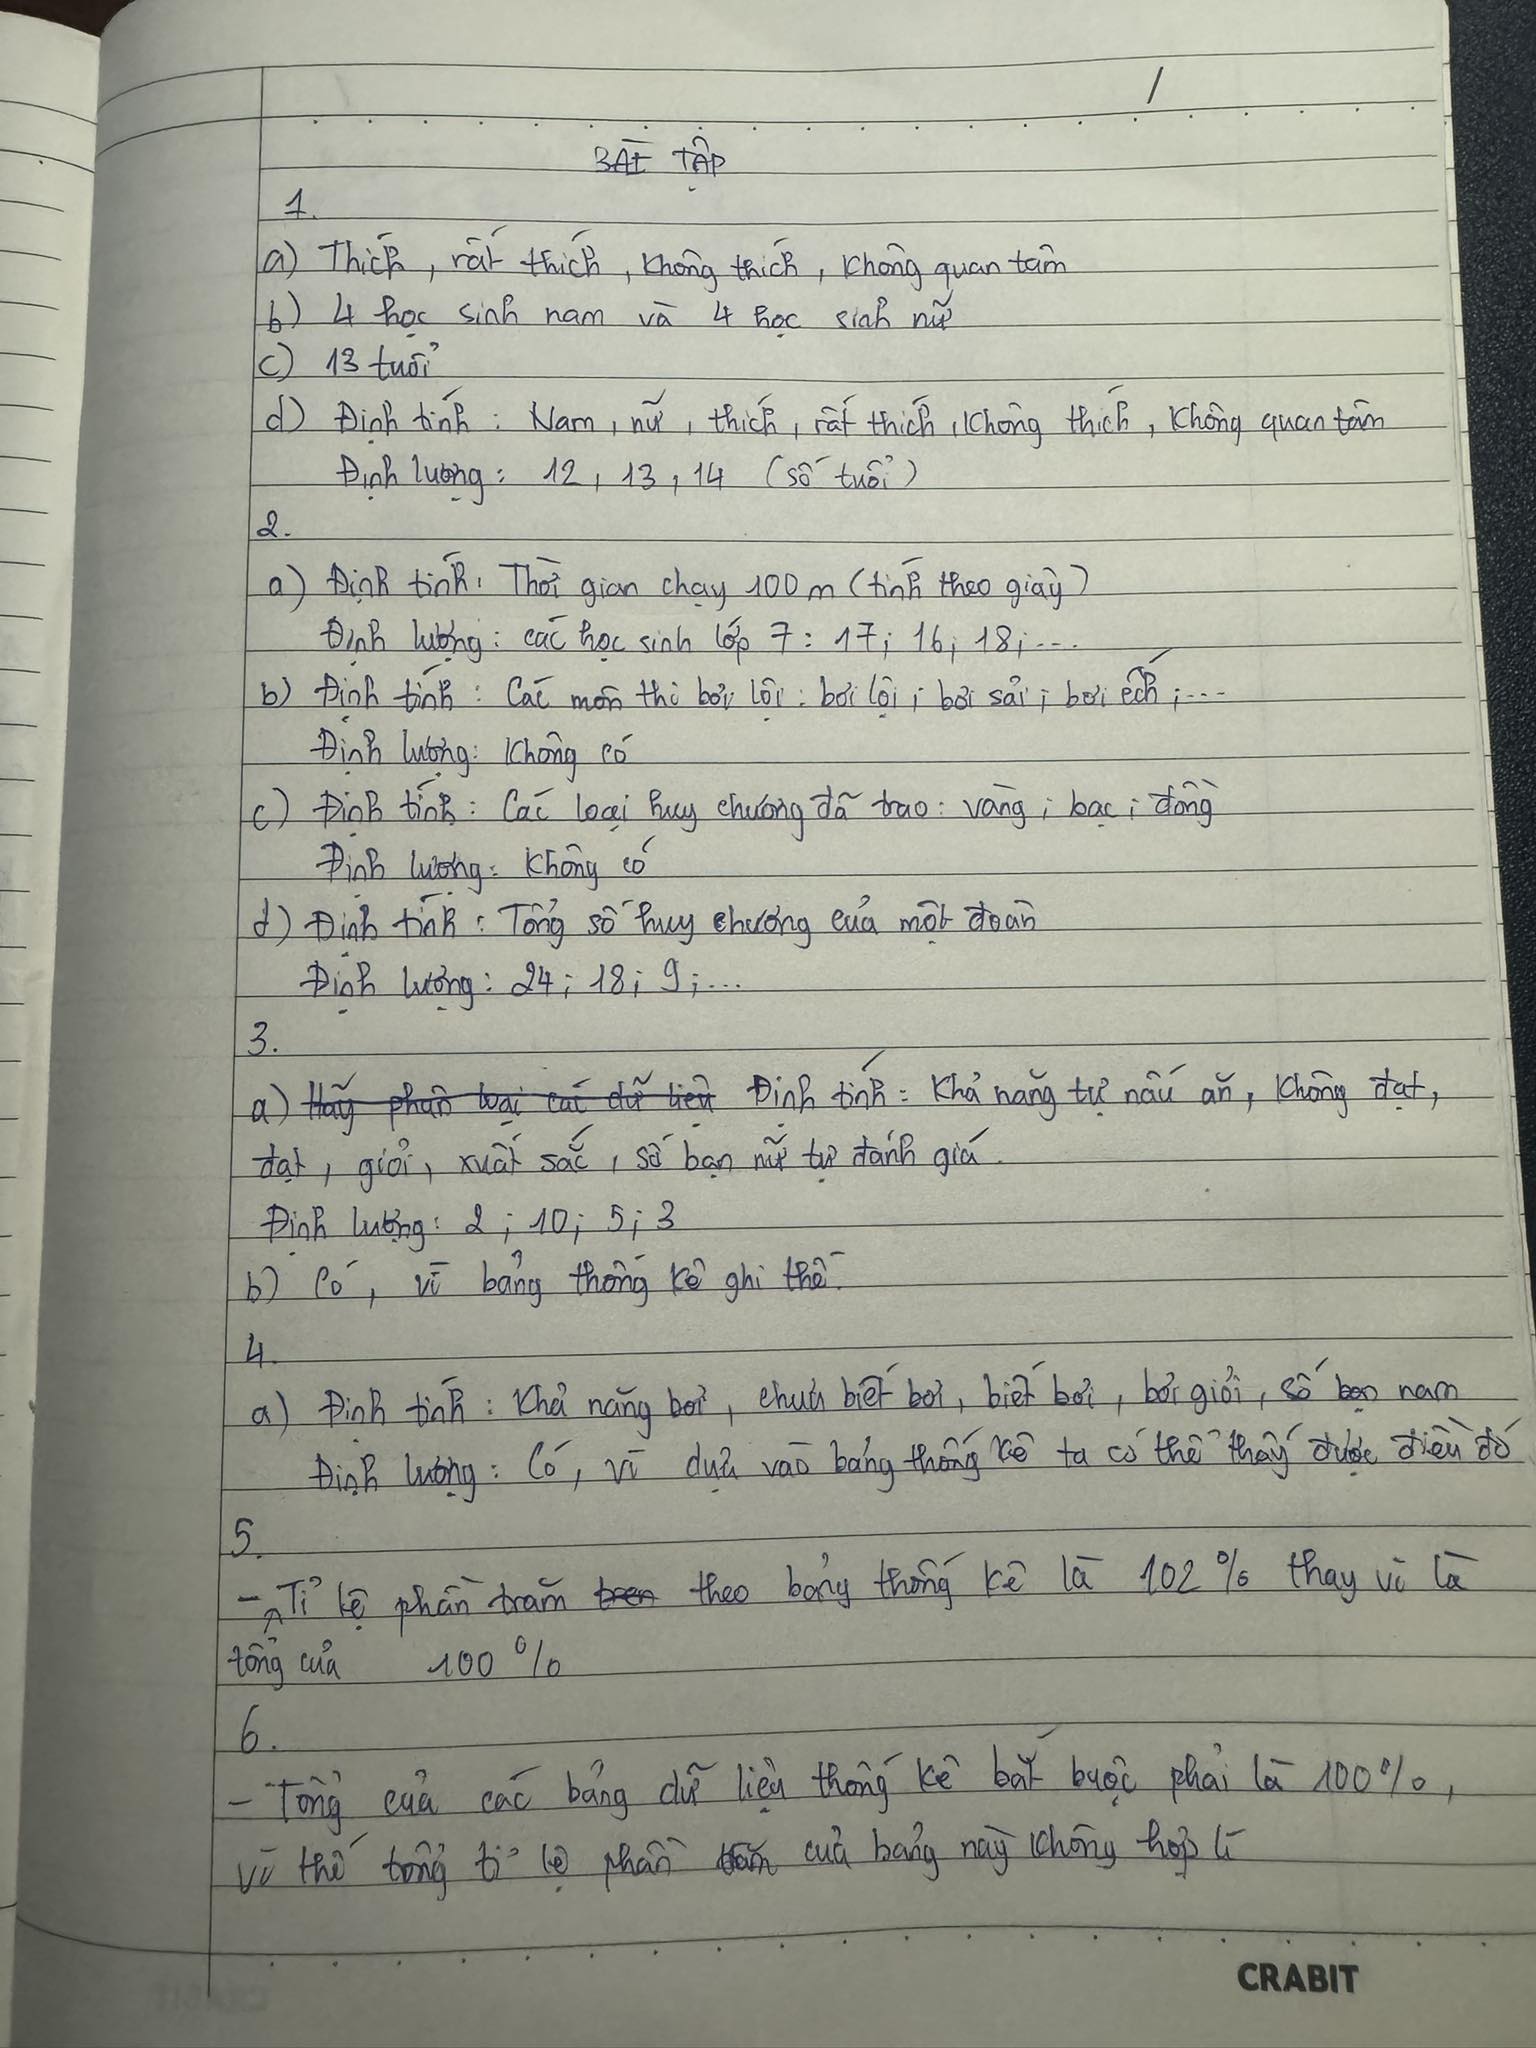 BÀI TẬP
1.
a) Thích, rất thích, không thích, không quan tâm
b) 4 học sinh nam và 4 học sinh nữ
c) 13 tuổi
d) Định tính : Nam, nữ, thích, rất thích, không thích, không quan tâm
Định lượng : 12, 13, 14 (số tuổi)
2.
a) Định tính : Thời gian chạy 100 m (tính theo giây)
Định lượng : các học sinh lớp 7 : 17; 16; 18;...
b) Định tính : Các môn thi bơi lội : bơi lội; bơi sải; bơi ếch;...
Định lượng : Không có
c) Định tính : Các loại huy chương đã trao : vàng; bạc; đồng
Định lượng : Không có
d) Định tính : Tổng số huy chương của một đoàn
Định lượng : 24; 18; 9;...
3.
a) Hãy phân loại các dữ liệu Định tính : Khả năng tự nấu ăn, không đạt,
đạt, giỏi, xuất sắc, số bạn nữ tự đánh giá.
Định lượng : 2; 10; 5; 3
b) Có, vì bảng thống kê ghi thế.
4.
a) Định tính : Khả năng bơi, chưa biết bơi, biết bơi, bơi giỏi, số bạn nam
Định lượng : Có, vì dựa vào bảng thống kê ta có thể thấy được điều đó
5.
- Tỉ lệ phần trăm trên theo bảng thống kê là 102 % thay vì là
tổng của 100 %
6.
- Tổng của các bảng dữ liệu thống kê bắt buộc phải là 100%,
vì thế tổng tỉ lệ phần trăm của bảng này không hợp lí
CRABIT